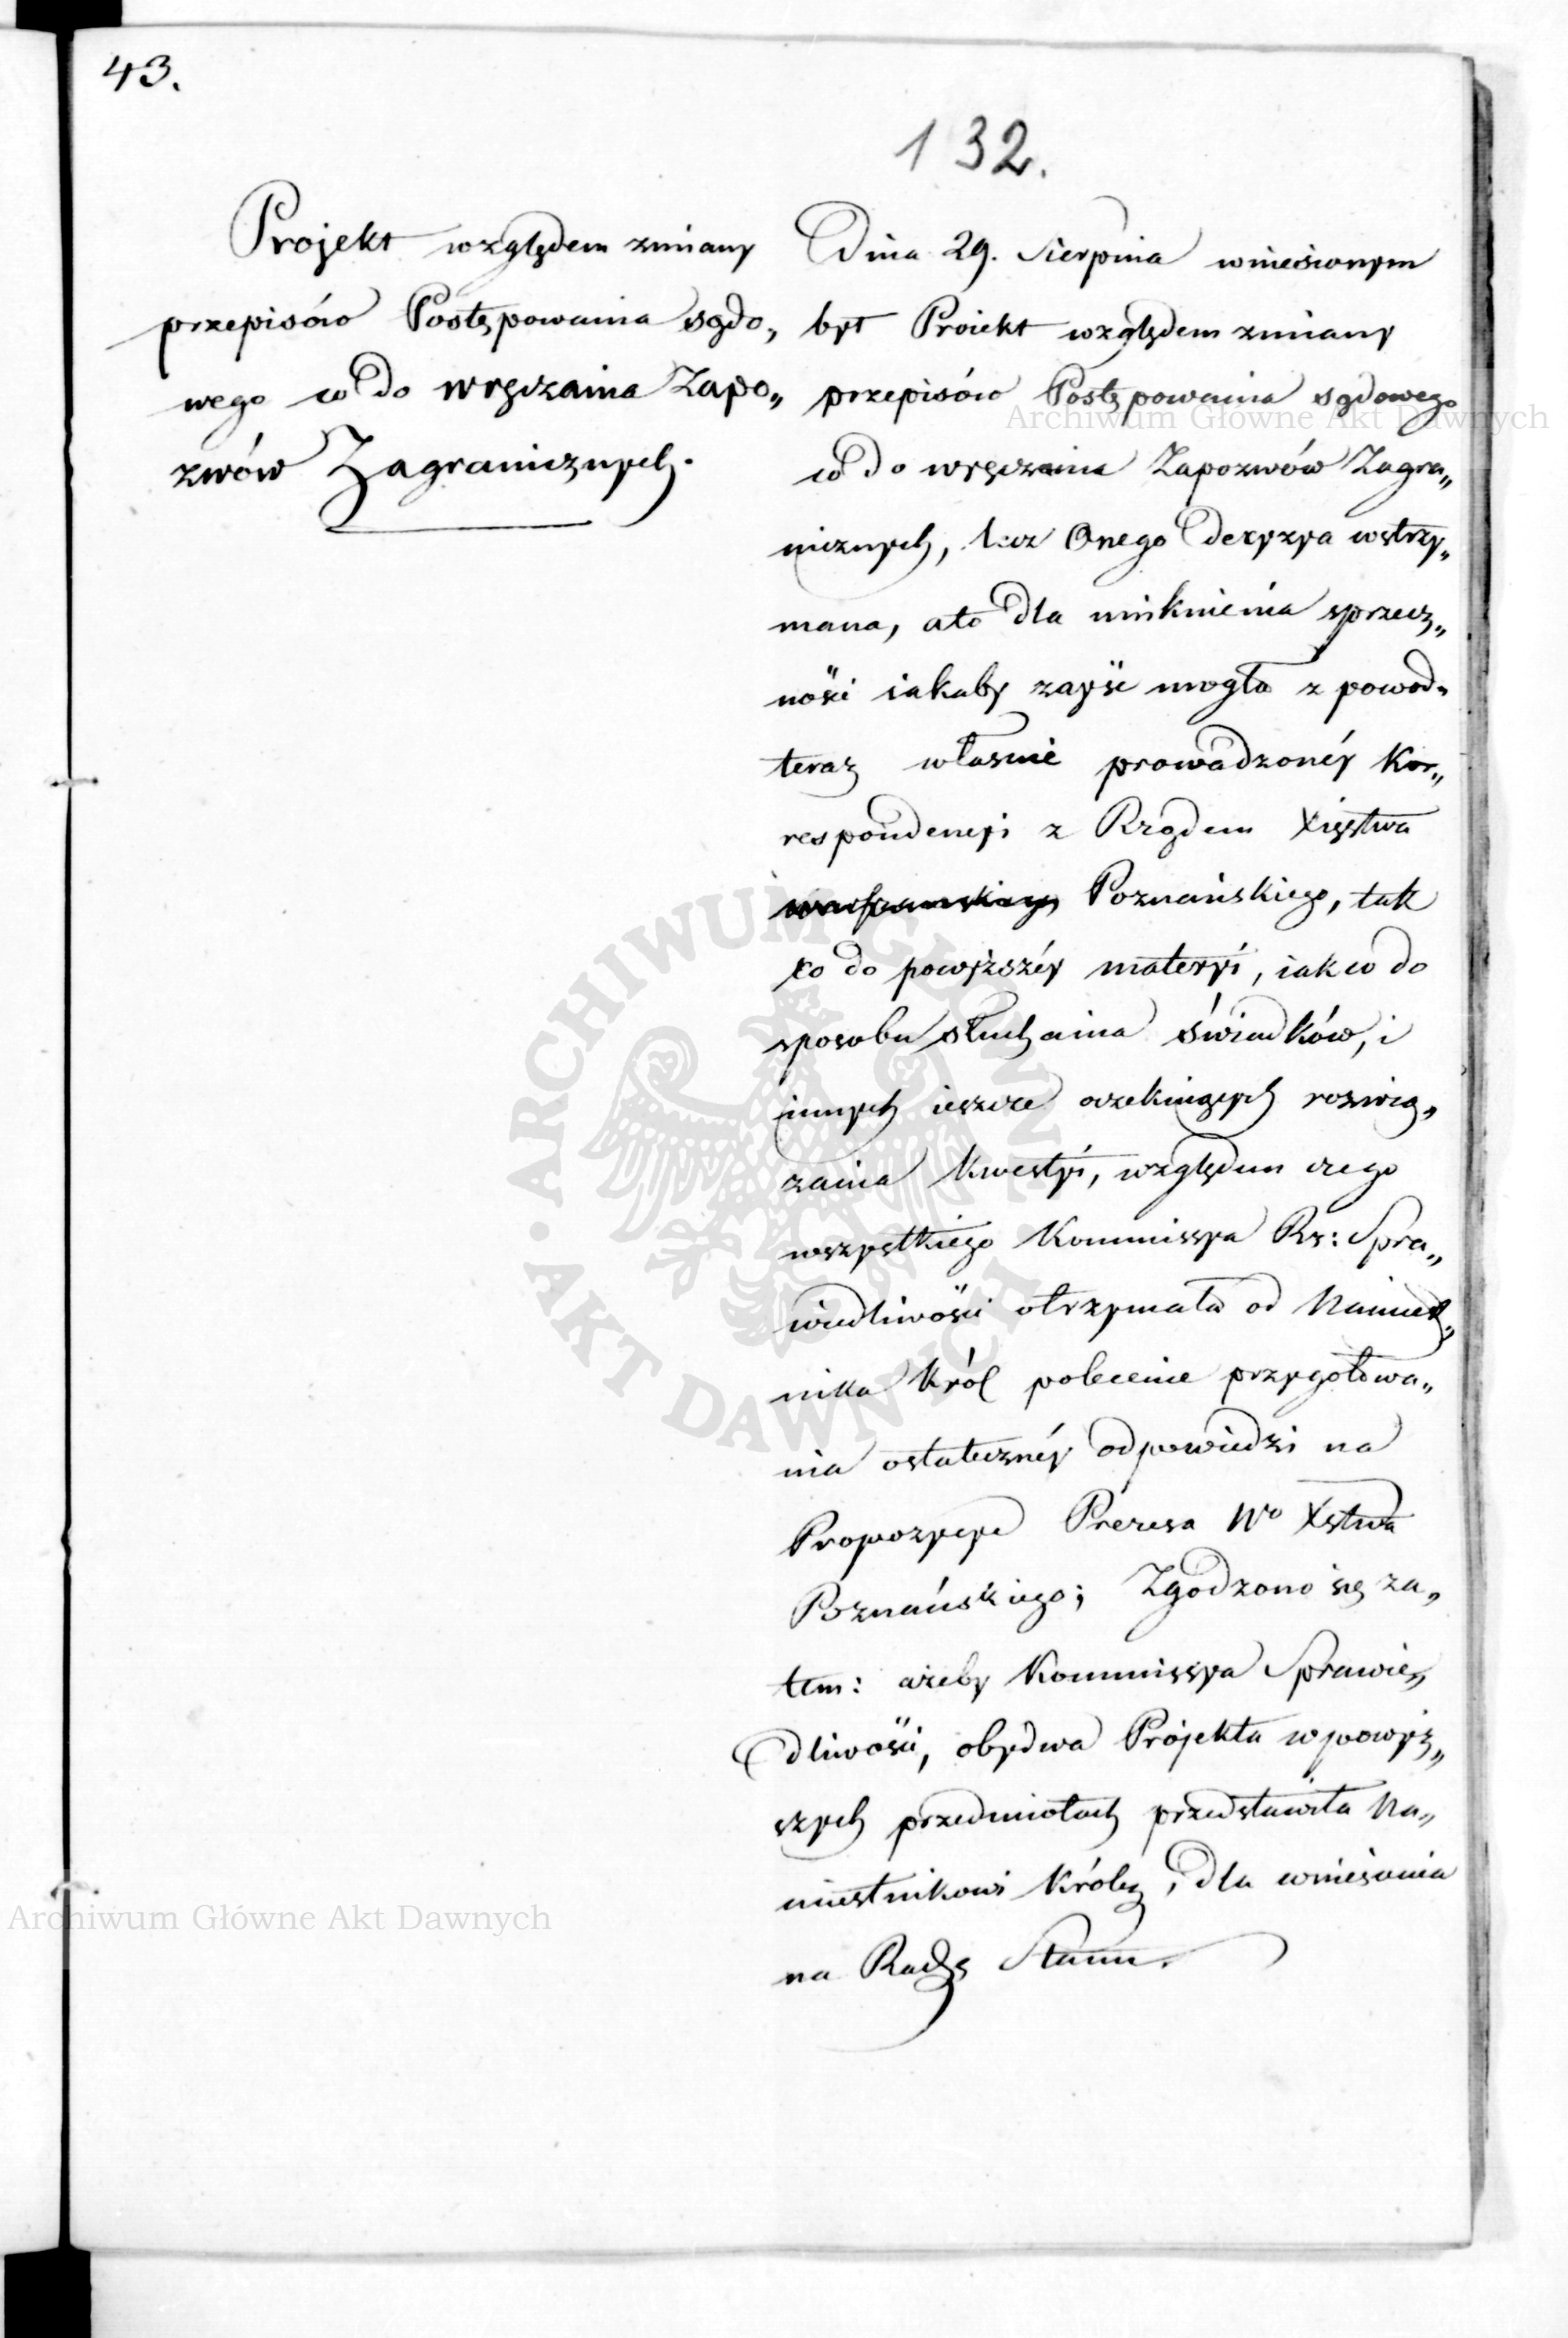 43.
132.
Projekt względem zmiany
przepisów Postępowania sądo„
wego co do wręczania Zapo„
zwów Zagranicznych.
Dnia 29. Sierpnia wniesionym
był Proiekt względem zmiany
przepisów Postępowania sądowego
co do wręczania Zapozwów Zagra„
nicznych, lecz Onego Decyzya wstrzy„
mana, ato dla uniknienia sprzecz„
ności iakaby zayść mogła z powodu
teraz własnie prowadzonéy Kor„
respondencyi z Rządem Xięstwa
Poznańskiego, tak
co do powyższéy materyi, iak co do
sposobu słuchania świadków, i
innych ieszcze oczekuiących rozwią„
zania Kwestyi, względem czego
wszystkiego Kommissya Rz: Spra„
wiedliwości otrzymała od Namiest„
nika Król polecenie przygotowa„
nia ostatecznéy odpowiedzi na
Propozycye Prezesa Wo Xstwa
Poznańskiego; Zgodzono się za„
tem: ażeby Kommissya Sprawie„
dliwości, obydwa Projekta w powyż„
szych przedmiotach przedstawiła Na„
miestnikowi Królew, dla wniesienia
na Radę Stanu.
Archiwum Główne Akt Dawnych
Archiwum Główne Akt Dawnych
ARCHIWUM GŁÓWNE AKT DAWNYCH